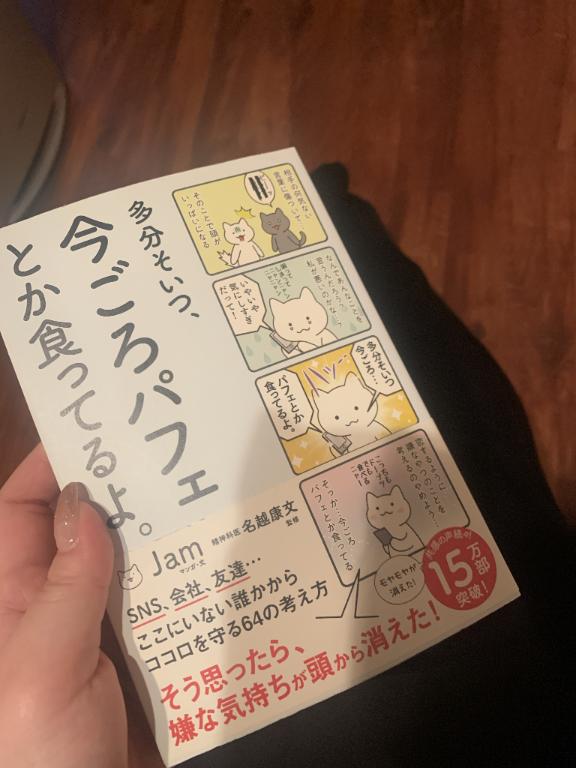 多分そいつ、
今ごろパフェ
とか食ってるよ。
相手の何気ない
言葉に傷ついて、
そのことで頭が
いっぱいになる
なんであんなことを
言うんだろう…
私が悪いのかな…?
いやいや
気にしすぎ
だって!
ハッ…
多分そいつ
今ごろ…
パフェとか
食ってるよ。
恋するように
嫌なやつのことを
考えるのやめよう…
そっか…今ごろ
パフェとか食ってる
モヤモヤが
消えた!
Jam
マンガ・文
精神科医 名越康文
監修
SNS、会社、友達…
ここにいない誰かから
ココロを守る64の考え方
共感の声続々!
15万部
突破!
そう思ったら、
嫌な気持ちが頭から消えた!